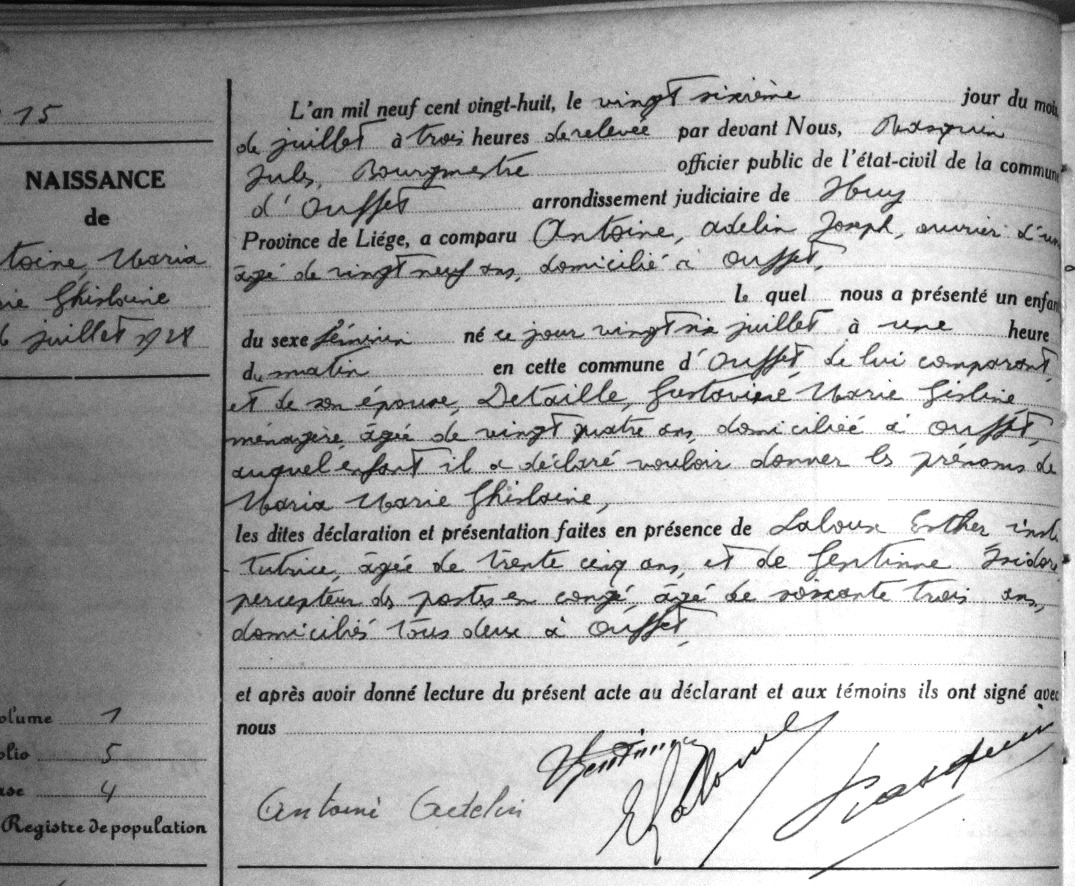 15
NAISSANCE
de
toine, Maria
rie Ghislaine
6 juillet 1928
L'an mil neuf cent vingt-huit, le vingt sixième jour du mois
de juillet à trois heures de relevée par devant Nous,
Jules, Bourgmestre officier public de l'état-civil de la commune
d'Ouffet arrondissement judiciaire de Huy
Province de Liége, a comparu Antoine, Adelin Joseph, ouvrier d'un
âgé de vingt neuf ans, domicilié à Ouffet,
le quel nous a présenté un enfan
du sexe féminin né ce jour vingt six juillet à une heure
du matin en cette commune d'Ouffet de lui comparant,
et de son épouse, Detaille, Marie Gisline
ménagère, âgée de vingt quatre ans, domiciliée à Ouffet,
auquel enfant il a déclaré vouloir donner les prénoms de
Maria Marie Ghislaine,
les dites déclaration et présentation faites en présence de Laloux Esther insti
tutrice, âgée de trente cinq ans, et de Gentinne Isidore
percepteur des postes en congé, âgé de soixante trois ans,
domiciliés tous deux à Ouffet,
et après avoir donné lecture du présent acte au déclarant et aux témoins ils ont signé avec
nous
Antoine Adelin Gentinne E Laloux
olume 1
olio 5
ase 4
Registre de population